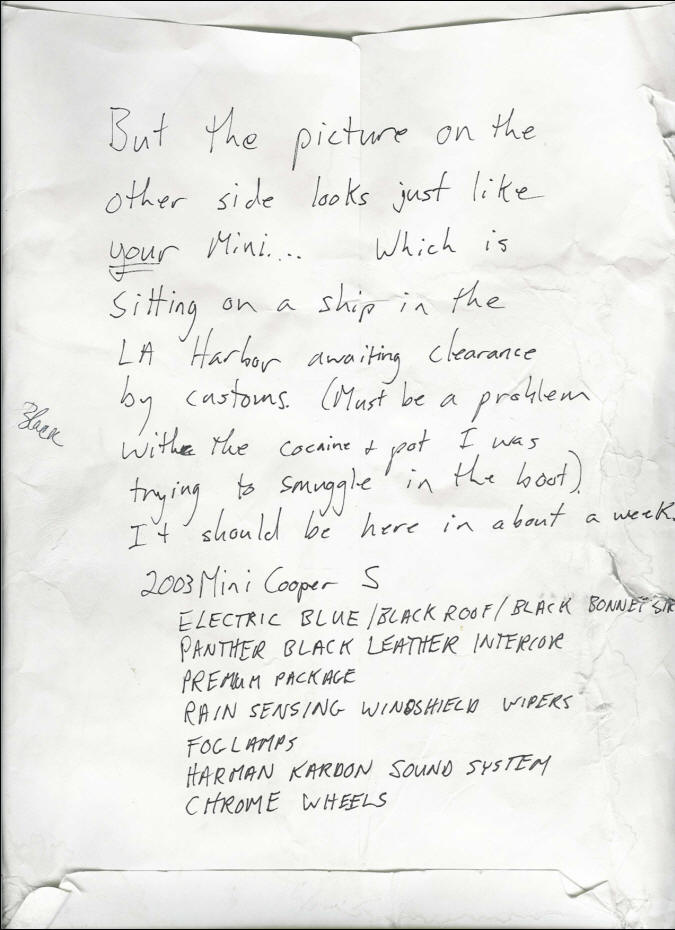 But the picture on the
other side looks just like
your Mini.... Which is
sitting on a ship in the
LA Harbor awaiting clearance
by customs. (Must be a problem
Black
with the cocaine + pot I was
trying to smuggle in the boot).
It should be here in about a week.
2003 Mini Cooper S
ELECTRIC BLUE/BLACK ROOF/BLACK BONNET STR
PANTHER BLACK LEATHER INTERIOR
PREMIUM PACKAGE
RAIN SENSING WINDSHIELD WIPERS
FOGLAMPS
HARMAN KARDON SOUND SYSTEM
CHROME WHEELS